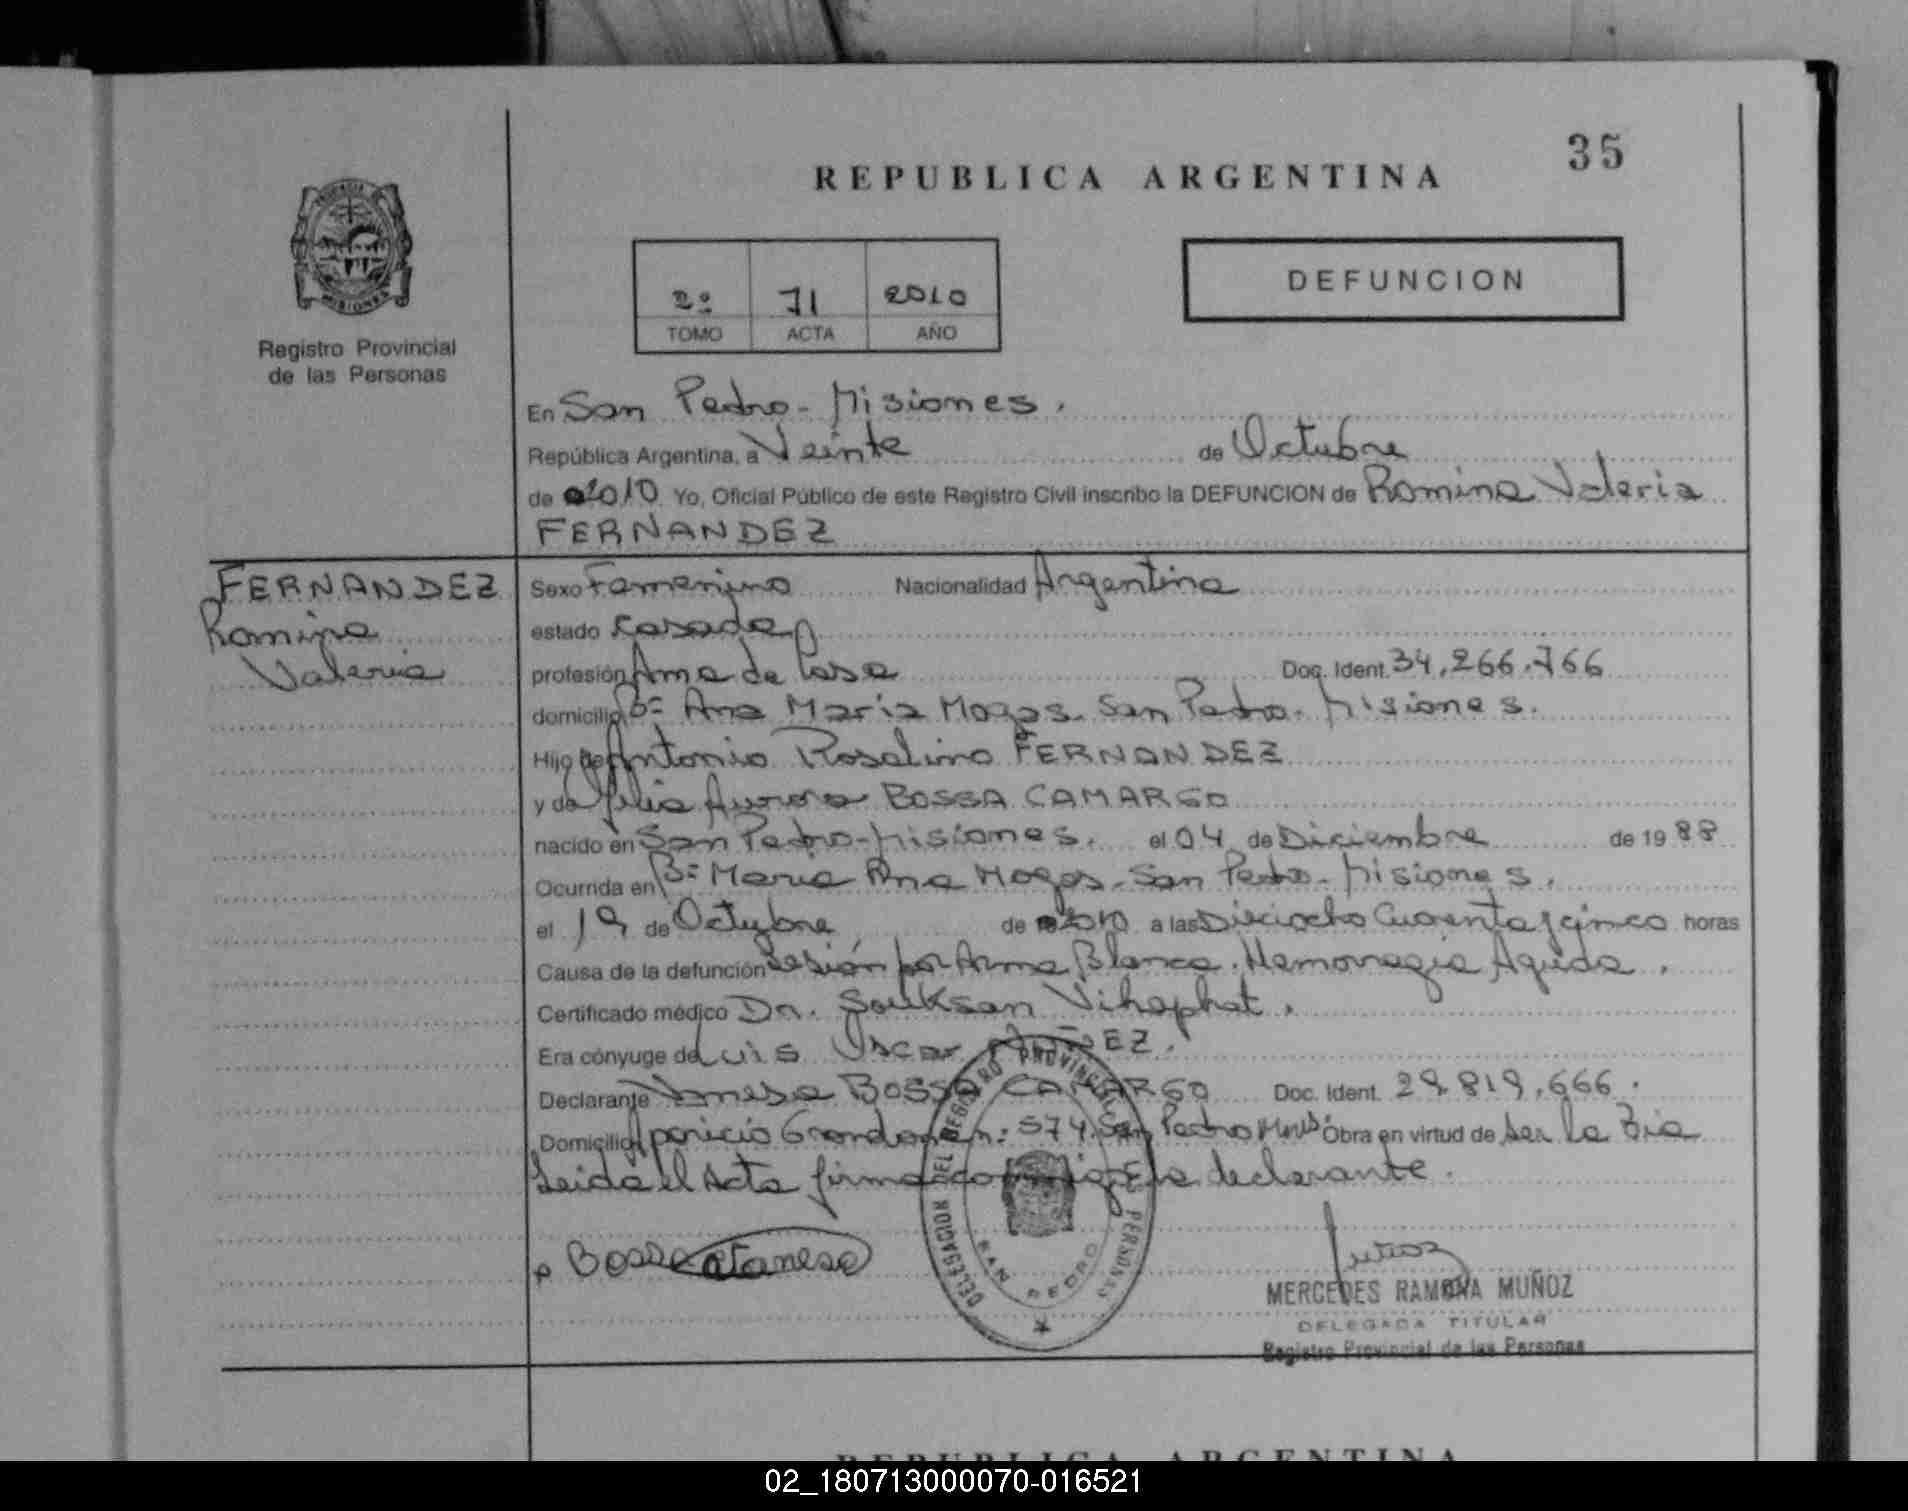 35
REPUBLICA ARGENTINA
2º 71 2010
TOMO ACTA AÑO
DEFUNCION
PROVINCIA DE
MISIONES
Registro Provincial
de las Personas
En San Pedro - Misiones.
República Argentina, a Veinte de Octubre
de 2010 Yo, Oficial Público de este Registro Civil inscribo la DEFUNCION de Romina Valeria
FERNANDEZ
FERNANDEZ
Romina
Valeria
Sexo Femenino Nacionalidad Argentina
estado Casada
profesión Ama de Casa Doc. Ident. 34.266.766
domicilio Bº Ana Maria Mogas. San Pedro. Misiones.
Hijo de Antonio Rosalino FERNANDEZ
y de Aurora BOSSA CAMARGO
nacido en San Pedro - Misiones. el 04 de Diciembre de 1988
Ocurrida en Bº Maria Ana Mogas. San Pedro - Misiones.
el 19 de Octubre de 2010 a las Dieciocho Cuarenta y cinco horas
Causa de la defunción Lesión por Arma Blanca. Hemorragia Aguda.
Certificado médico Dr. Souksan Vihaphat.
Era cónyuge de Luis Oscar
Declarante BOSSA CAMARGO Doc. Ident. 29.819.666.
Domicilio Aparicio 574. San Pedro Mnes Obra en virtud de ser la Tia
Leida el Acta firma conmigo la declarante.
Bossa
DELEGACION DEL REGISTRO PROVINCIAL DE LAS PERSONAS
SAN PEDRO
MERCEDES RAMONA MUÑOZ
DELEGADA TITULAR
Registro Provincial de las Personas
REPUBLICA ARGENTINA
02_180713000070-016521